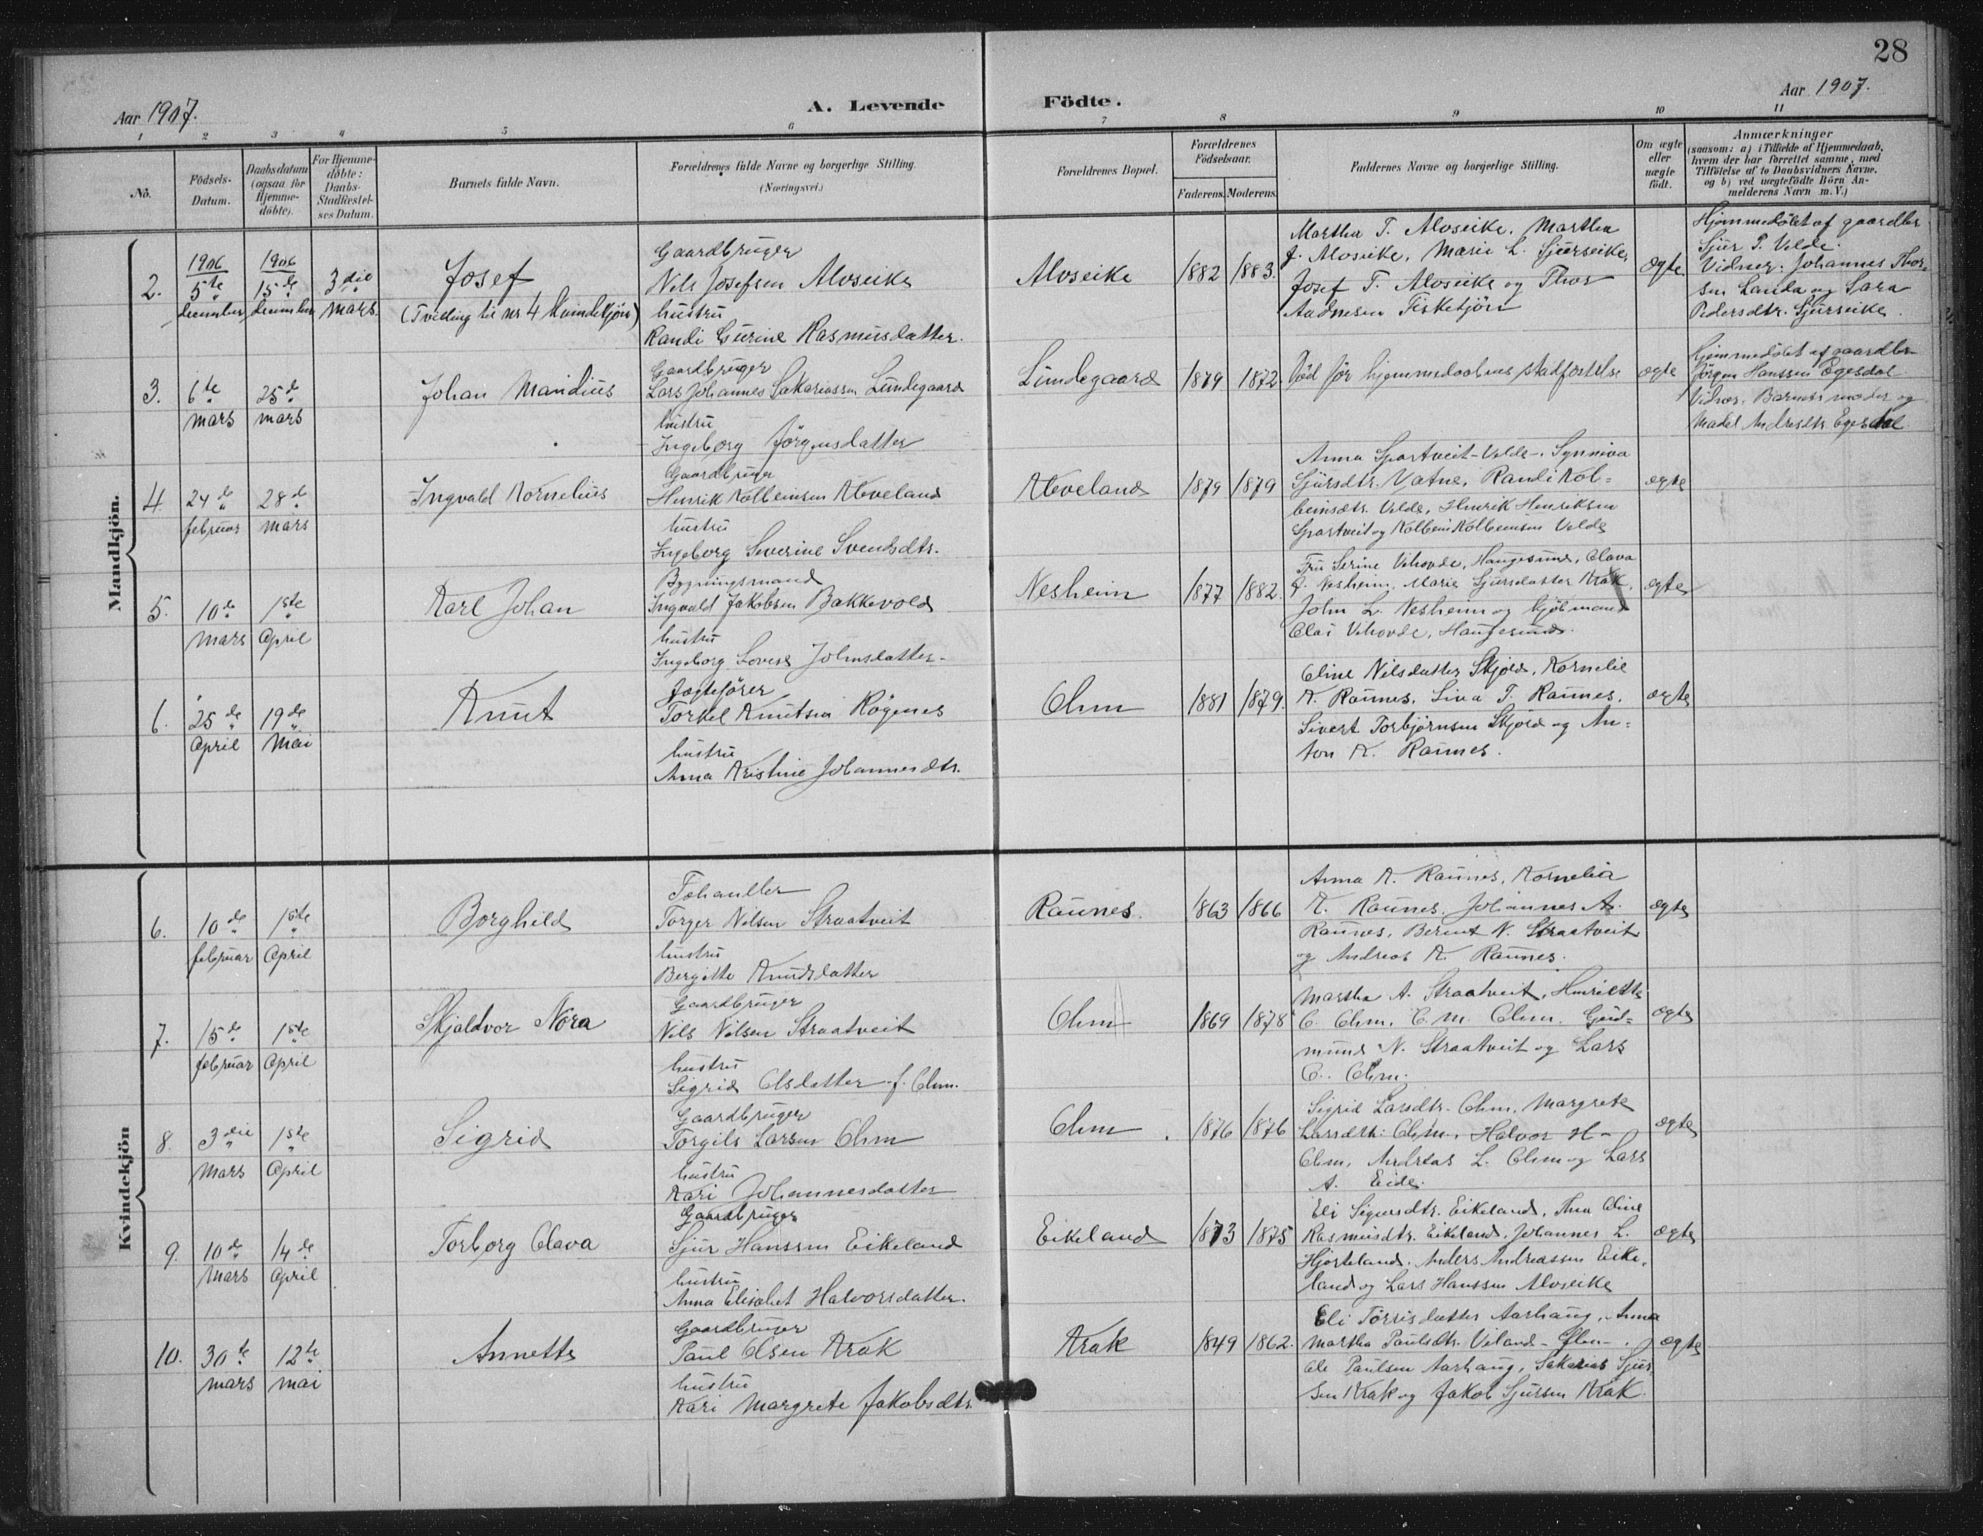 28
Aar 1907.
A. Levende Födte.
Aar 1907.
1 2 3 4 5 6 7 8 9 10 11
No.
Födsels-
Datum.
Daabsdatum
(ogsaa for
Hjemme-
döbte).
For Hjemme-
döbte:
Daabs-
Stadfæstel-
ses Datum.
Barnets fulde Navn.
Forældrenes fulde Navne og borgerlige Stilling.
(Næringsvei.)
Forældrenes Bopæl.
Forældrenes
Födselsaar.
Faderens. Moderens.
Faddernes Navne og borgerlige Stilling.
Om ægte
eller
uægte
födt.
Anmærkninger
(saasom: a) i Tilfælde af Hjemmedaab,
hvem der har forrettet samme, med
Tilföielse af to Daabsvidners Navne,
og b) ved uægtefödte Börn An-
melderens Navn m. V.)
Mandkjön.
2.
1906
5te
december
1906
15de
december
3die
mars
Josef
(Tvilling til nr 4 kvindekjön)
Gaardbruger
Nils Josefsen Alvseike
hustru
Randi Gurine Rasmusdatter.
Alvseike
1882 1883.
Martha T. Alvseike, Martha
J. Alvseike, Marie L. Sjurseike,
Josef T. Alvseike og Thor
Aadnesen Fiskekjön
ægte
Hjemmedöbt af gaardbr
Sjur P. Velde.
Vidner: Johannes Thor-
sen Landa og Sara
Pedersdtr. Sjurseike.
3.
6te
mars
25de
mars
Johan Mandius
Gaardbruger
Lars Johannes Sakariassen Lundegaard
hustru
Ingeborg Jörgensdatter
Lundegaard
1879 1872.
Död för hjemmedaabens stadfæstelse
ægte
Hjemmedöbt af gaardbr
Jörgen Hanssen Egesdal.
Vidner: Barnets moder og
Madel Andresdtr. Egesdal
4
24de
februar
28de
mars
Ingvald Kornelius
Gaardbruger
Henrik Kolbeinsen Kleveland
hustru
Ingeborg Severine Svendsdtr.
Kleveland
1879 1879
Anna Spartveit-Velde, Synniva
Sjursdtr. Vatne, Randi Kol-
beinsdtr. Velde, Henrik Henriksen
Spartveit og Kolbein Kolbeinsen Velde
ægte
5.
10de
mars
1ste
April
Karl Johan
Bygningsmand
Ingvald Jakobsen Bakkevold
hustru
Ingeborg Lovise Johnsdatter.
Nesheim
1877 1882.
Fru Serine Vihovde, Haugesund, Olava
Nesheim, Marie Sjursdatter Krak,
John L. Nesheim og kjöbmand
Olai Vihovde, Haugesund.
ægte
6.
25de
April
19de
Mai
Knut
Jagtefører
Torkel Knutsen Rögenes
hustru
Anna Kristine Johannesdtr.
Ølen
1881 1879.
Oline Nilsdatter Skjold, Kornelie
K. Raunes, Lina T. Raunes,
Sivert Torbjörnsen Skjold og An-
ton K. Raunes.
ægte
Kvindekjön
6.
10de
februar
1ste
April
Borghild
Torger Nilsen Straatveit
hustru
Bergitte Knudsdatter
Raunes.
1863 1866
Anna K. Raunes, Kornelia
K. Raunes, Johannes A.
Raunes, Berent N. Straatveit
og Andreas K. Raunes.
ægte
7.
15de
februar
1ste
April
Skjaldvor Nora
Gaardbruger
Nils Nilsen Straatveit
hustru
Sigrid Olsdatter f. Ølen.
Ølen
1869 1878
Martha A. Straatveit, Henriette
O. Ølen, O. M. Ølen, Gud-
mund N. Straatveit og Lars
O. Ølen.
ægte
8.
3die
Mars
1ste
April
Sigrid
Gaardbruger
Torgils Larsen Ølen
hustru
Kari Johannesdatter
Ølen
1876 1876
Sigrid Larsdtr. Ølen, Margrete
Larsdtr. Ølen, Halvor H.
Ølen, Andreas L. Ølen og Lars
A. Eide.
ægte
9.
10de
Mars
14de
April
Torborg Olava
Gaardbruger
Sjur Hanssen Eikeland
hustru
Anna Elisabet Halvorsdatter.
Eikeland
1873 1875
Eli Sigurdsdtr. Eikeland, Thea Oline
Rasmusdtr. Eikeland, Johannes L.
Hjorteland, Anders Andreassen Eike-
land og Lars Hanssen Alvseike
ægte
10.
30te
mars
12te
mai
Annette
Gaardbruger
Paul Olsen Krak
hustru
Kari Margrete Jakobsdtr.
Krak
1849 1862.
Eli Torrisdatter Aarhaug, Anna
Martha Paulsdtr. Viland-Ølen,
Ole Paulsen Aarhaug, Sakarias Sjur-
sen Krak og Jakob Sjursen Krak.
ægte